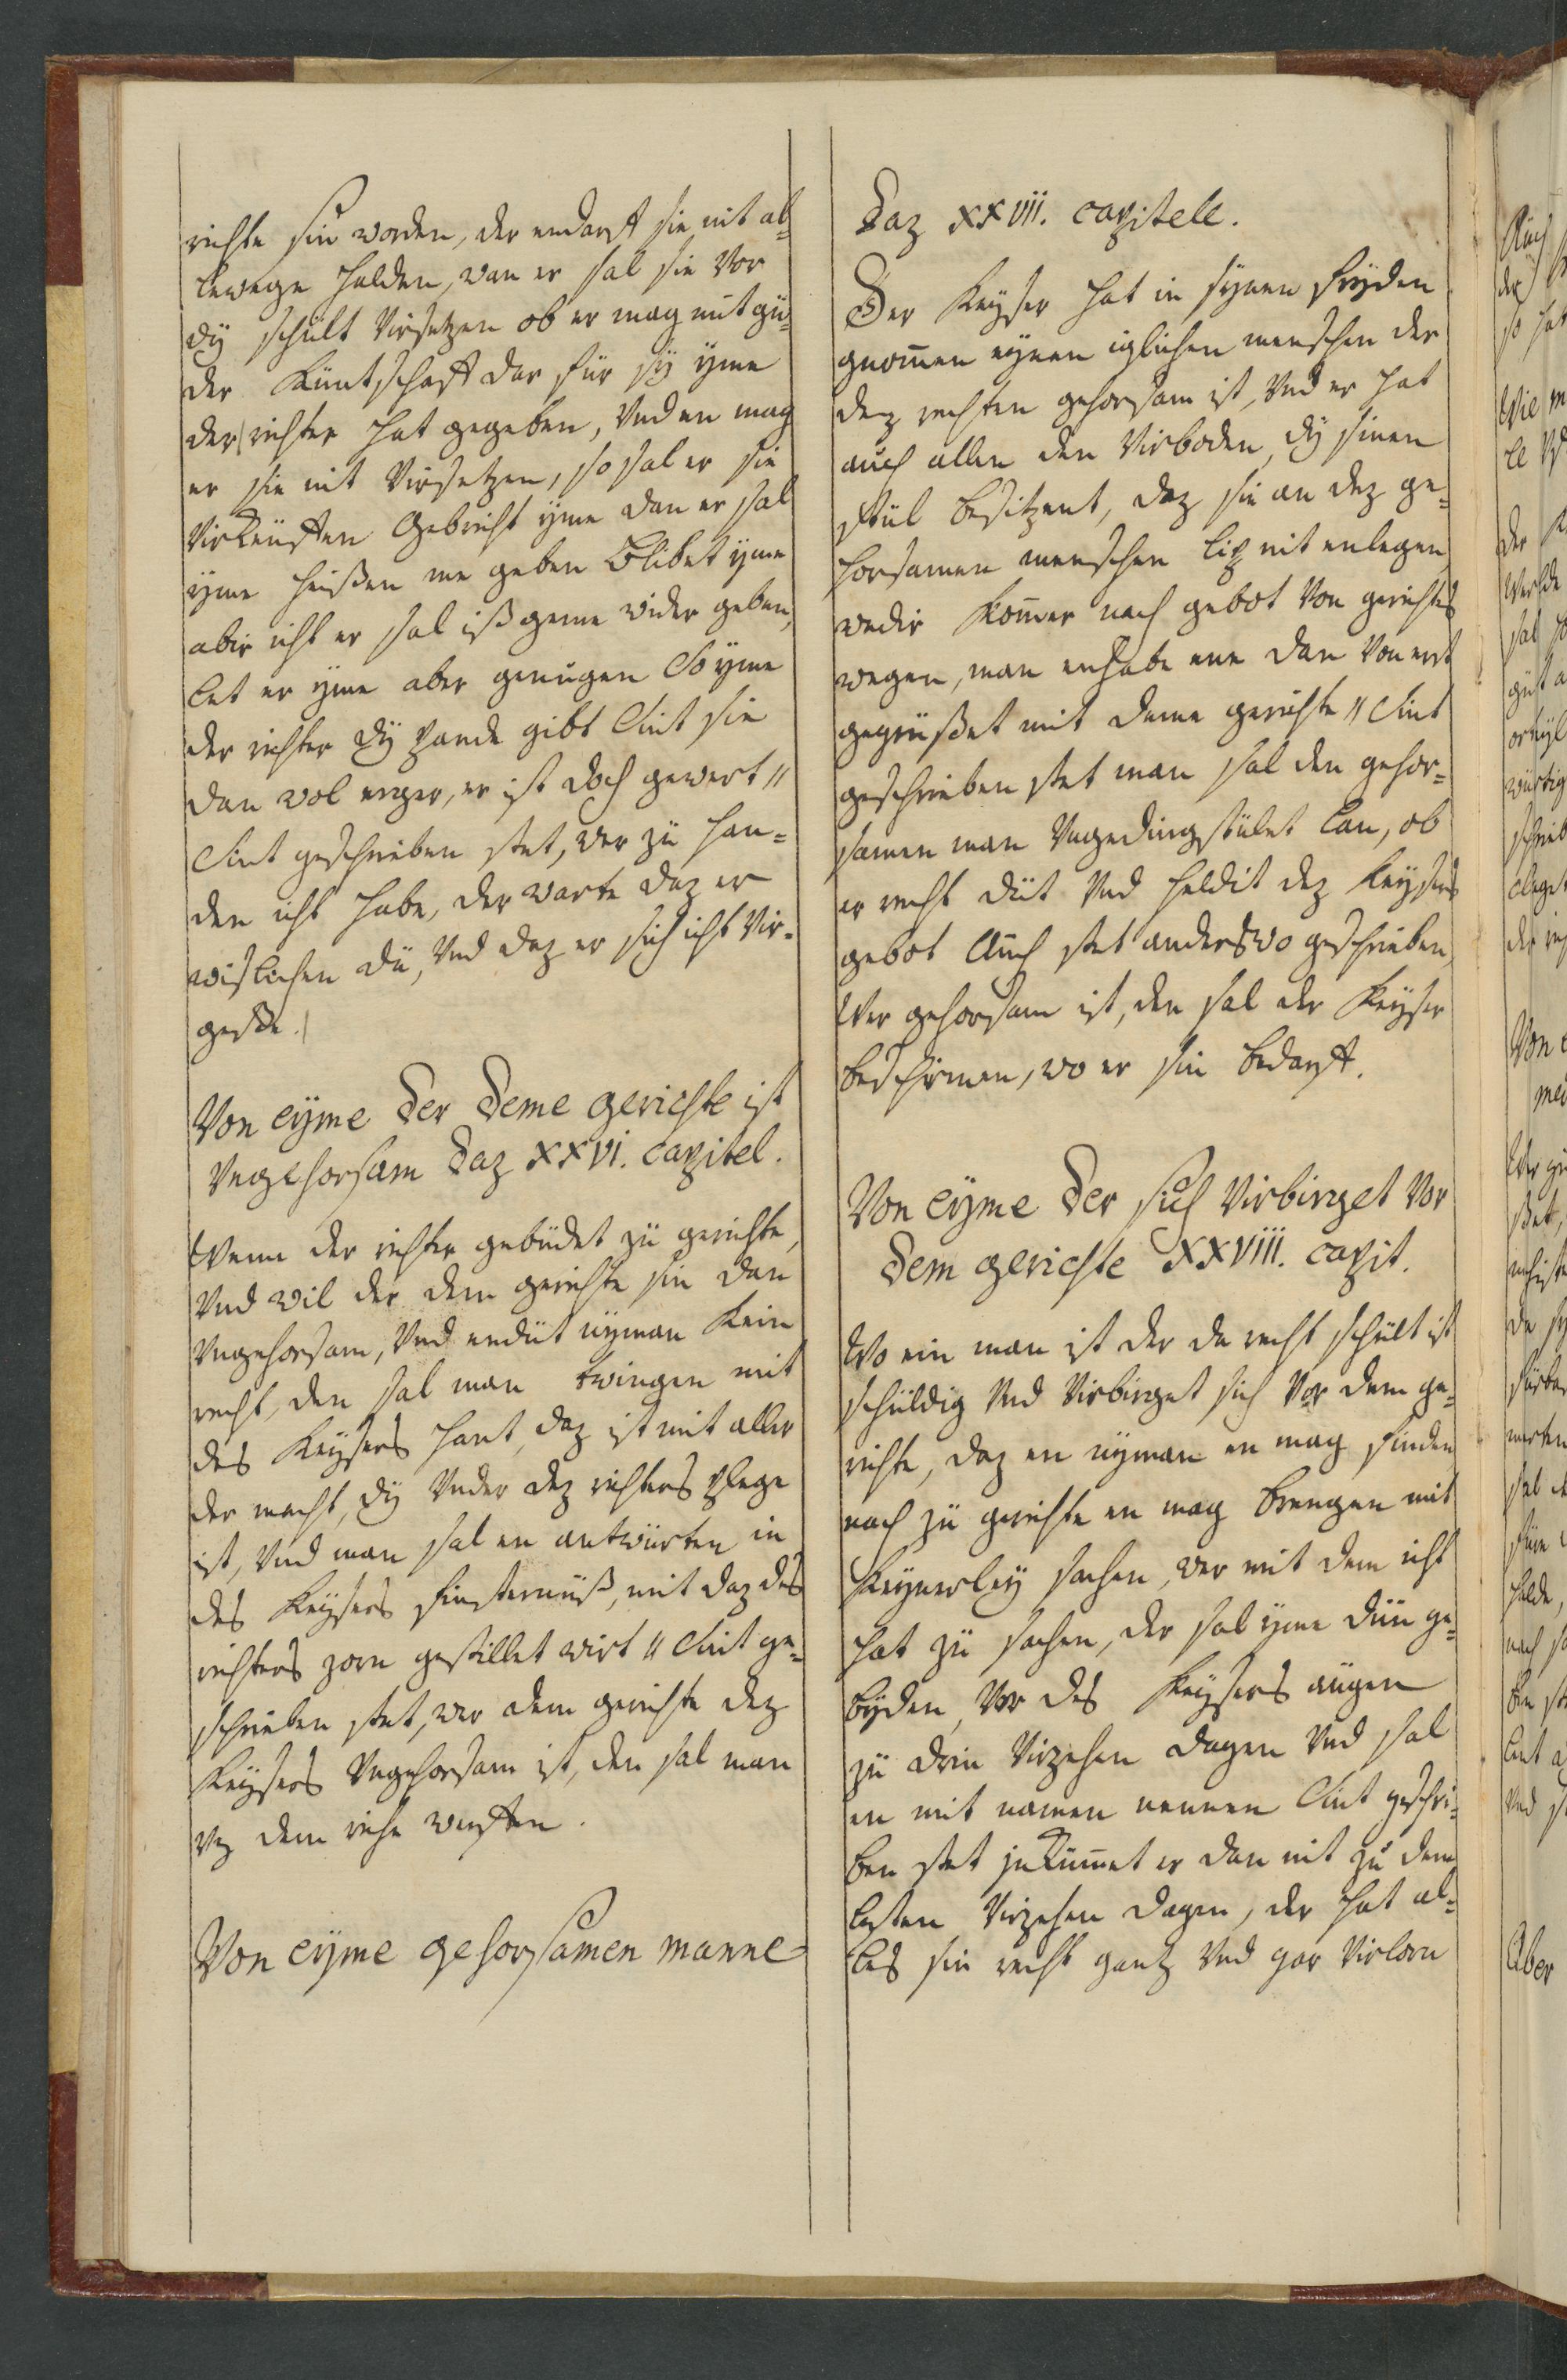 richte sin worden, der endarff sie nit al¬
lewege halden, wan er sal sie vor
dÿ schült virsetzen ob er mag mit gü¬
der küntschafft dar für sÿ ÿme
der richter hat gegeben, Vnd en mag
er sie nit virsetzen, so sal er sie
virkeüffen Gebricht ÿme dan er sal
ÿme heißen me geben Blibet ÿme
abir icht er sal iß geme wider geben,
let er ÿme aber genügen So ÿme
der richter dÿ pande gibt Sint sie
dan wol erger, er ist doch gewert //
Sint geschrieben stet, wer zü han¬
den icht habe, der warte daz er
wislichen dü, Vnd daz er sich icht vir¬
gesse.
Von eÿme der deme gerichte ist
Vngehorsam daz XXVI. capitel.
Wenn der richter gebüdet zü gerichte,
Vnd wil der dem gerichte sin dan
vngehorsam, Vnd endüt nÿman kein
recht, den sal man twingen mit
des Keÿsers hant, daz ist mit aller
der macht, dÿ vnder dez richters plege
ist, Vnd man sal en antwürten in
des Keÿsers finsternüß, mit daz des
richters zorn gestillet wirt // Sint ge¬
schrieben stet, wer dem gerichte dez
Keÿsers Vngehorsam ist, den sal man
vz dem riche werffen.
Von eÿme gehorsamen manne
daz XXVII. capitele.
Der Keÿser hat in sÿnen fryden
gnom̄en eÿnen iglichen menschen der
dez rechten gehorsam ist, Vnd er hat
auch allen den virboden, dÿ sinen
stül besitzent, daz sie an dez ge¬
horsamen menschen lip nit enlegen
wedir kom̄er nach gebot von gerichtes
wegen, man enhabe ene dan von erst
gegrüßet mit deme gerichte // Sint
geschrieben stet man sal den gehor¬
samen man vngedingstület lan, ob
er recht düt vnd heldit dez Keÿsers
gebot Auch stet anderswo geschrieben,
Wer gehorsam ist, den sal der Keÿser
beschirmen, wo er sin bedarff.
Von eÿme der sich virbirget vor
dem gerichte XXVIII. capit.
Wo ein man ist der da recht schült ist
schüldig Vnd virbirget sich vor dem ge¬
richte, daz en nÿman en mag finden
noch zü gerichte en mag brengen mit
keÿnerleÿ sachen, wer mit dem icht
hat zü sachen, der sal ÿme dün ge¬
byden, vor des Keÿsers aügen
zü drin virzehen dagen Vnd sal
en mit namen nennen Sint geschri¬
ben stet jn kümet er dan nit zü dem
lesten virzehen dagen, der hat al¬
les sin recht gantz vnd gar virlorn